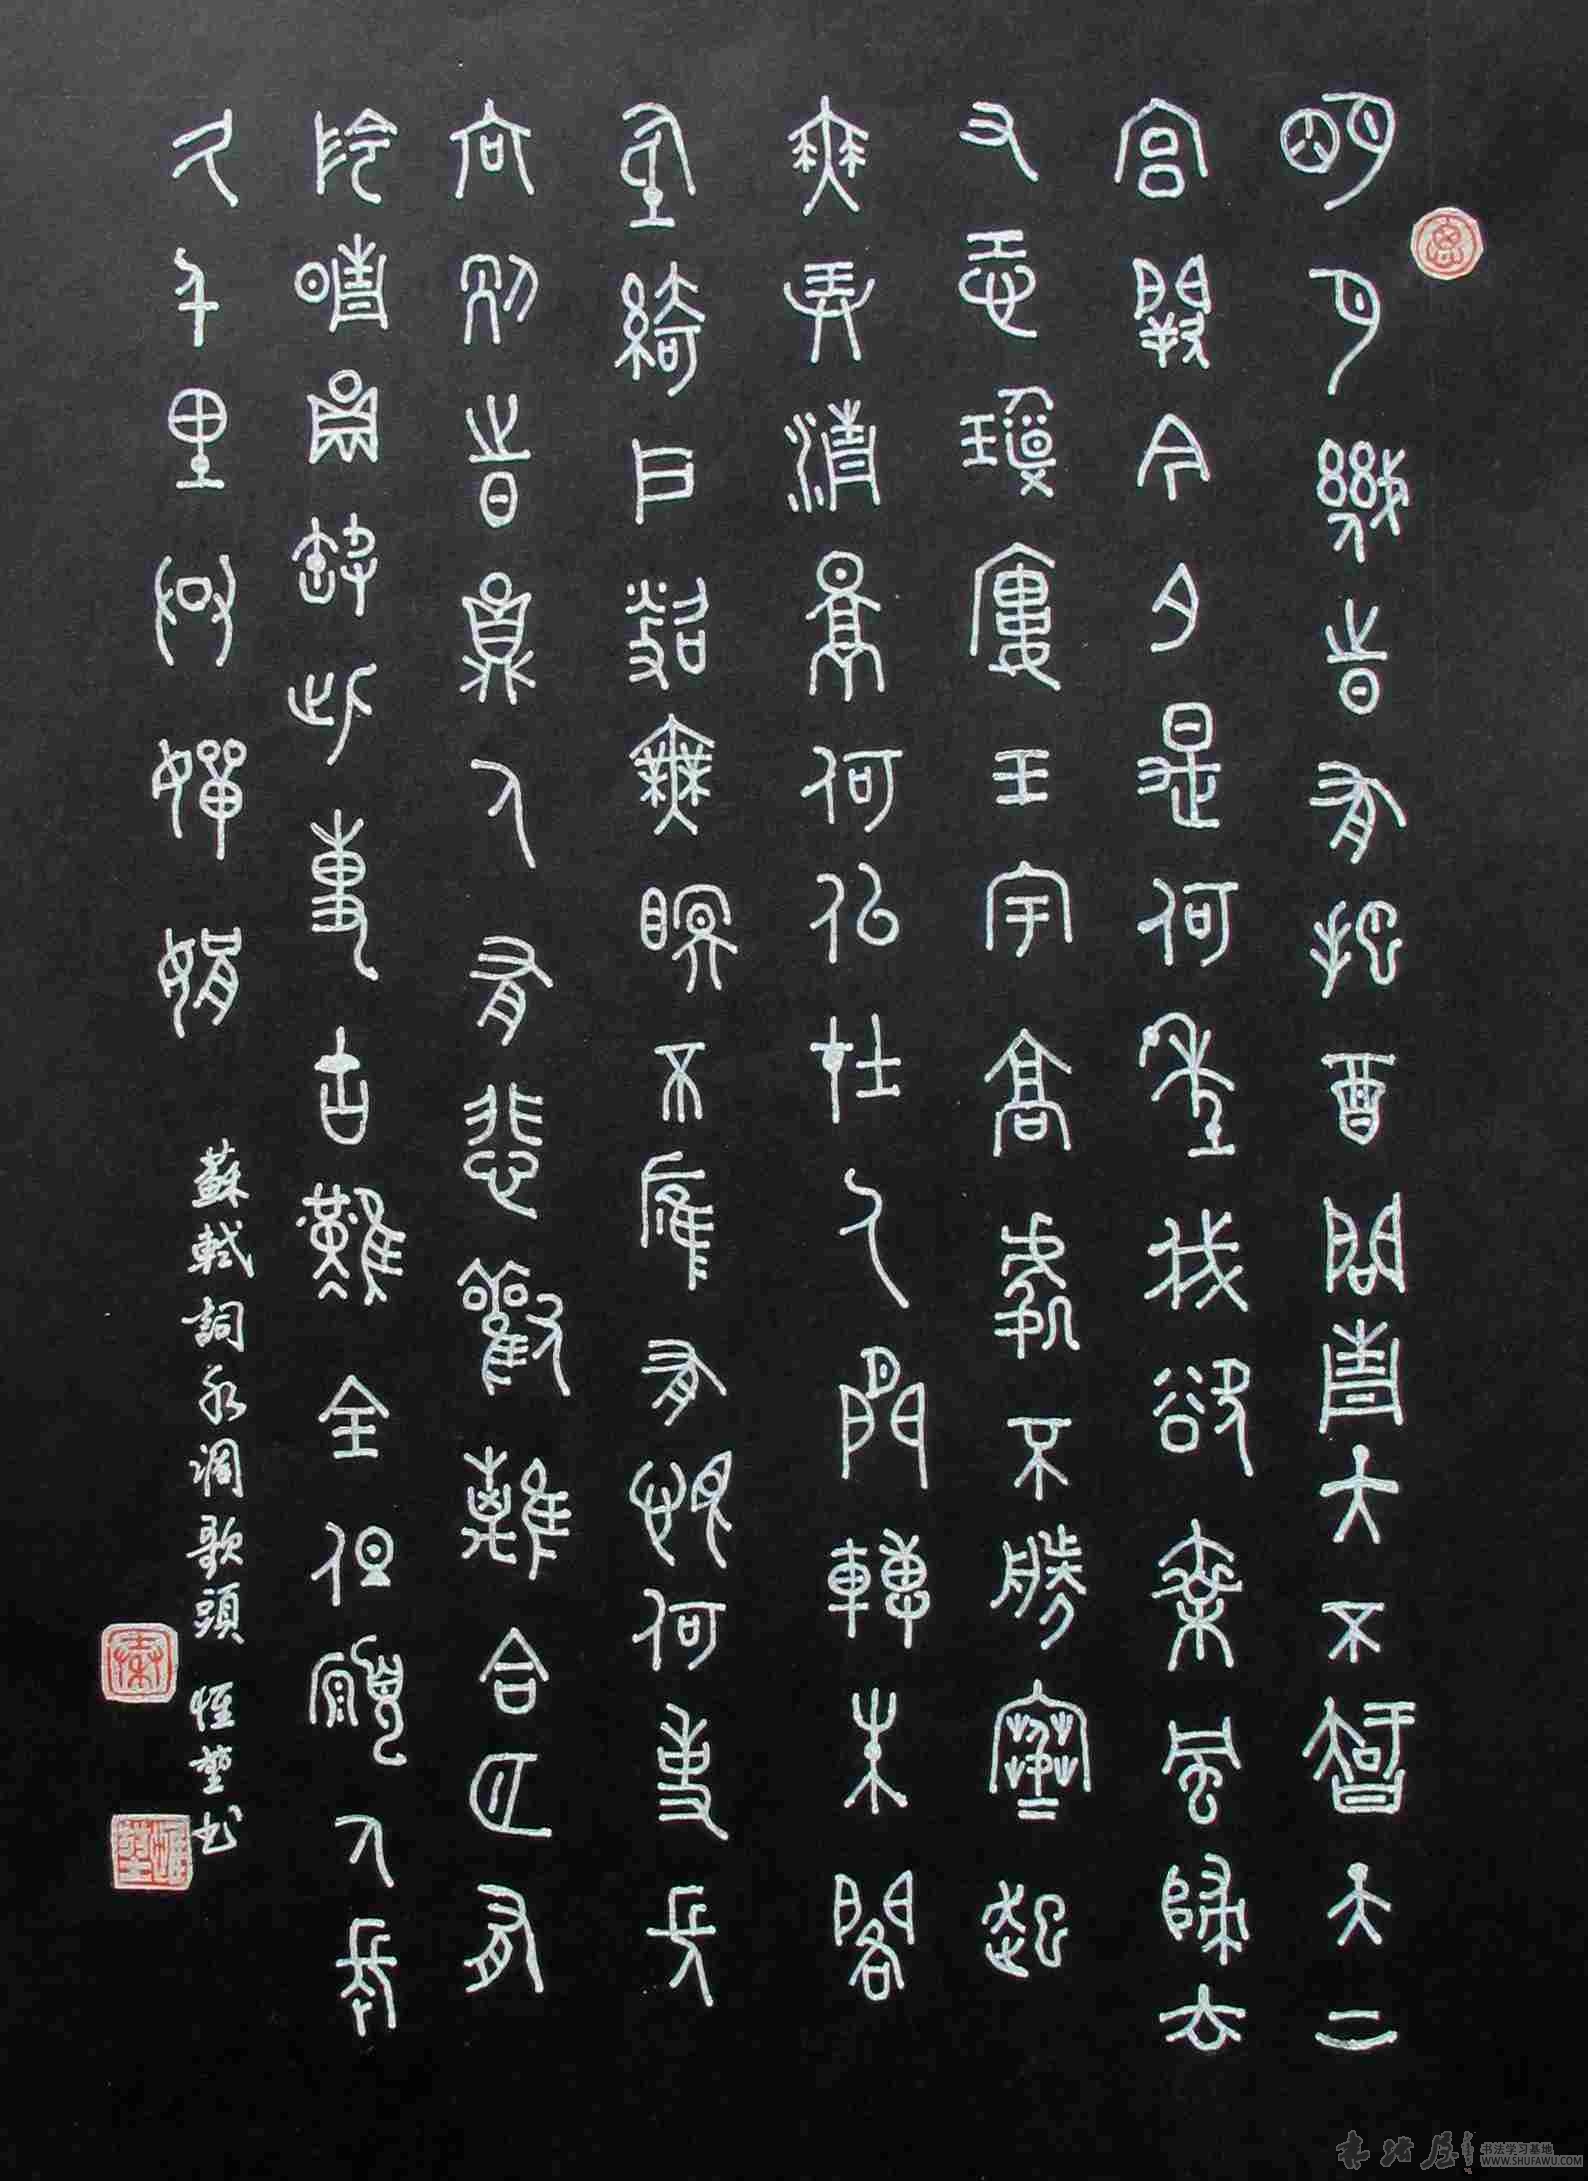 明月幾時有把酒問青天不知天上
宮闕今夕是何年我欲乘風歸去
又恐瓊樓玉宇高處不勝寒起
舞弄清影何似在人間轉朱閣
低綺戶照無眠不應有恨何事長
向別時圓人有悲歡離合月有
陰晴圓缺此事古難全但願人長
久千里共嬋娟
蘇軾詞水調歌頭 书
书法学习基地
WWW.SHUFAWU.COM